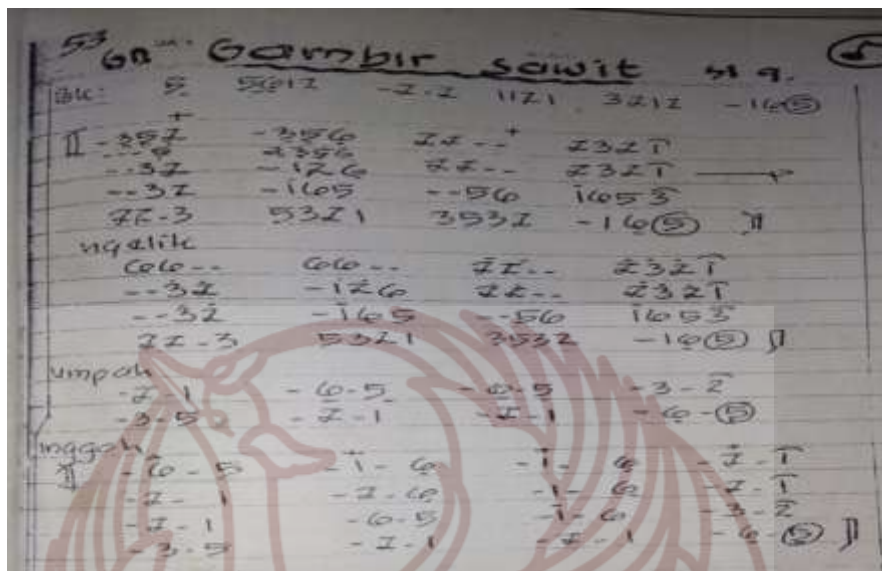 53 Gn Gambir Sawit sl 9. 5
BK: 5 5612 -2.2 1121 3212 -165
-352 -356 22-- 2321
2356
--32 -126 22-- 2321
--32 -165 --56 1653
22-3 5321 3532 -165
ngelik
66-- 66-- 22-- 2321
--32 -126 22-- 2321
--32 -165 --56 1653
22-3 5321 3532 -165
umpah
-2-1 -6-5 -6-5 -3-2
-3-5 -2-1 -2-1 -6-5
inggah
-6-5 -1-6 -1-6 -2-1
-2-1 -2-6 -1-6 -2-1
-2-1 -6-5 -1-6 -3-2
-3-5 -2-1 -2-1 -6-5